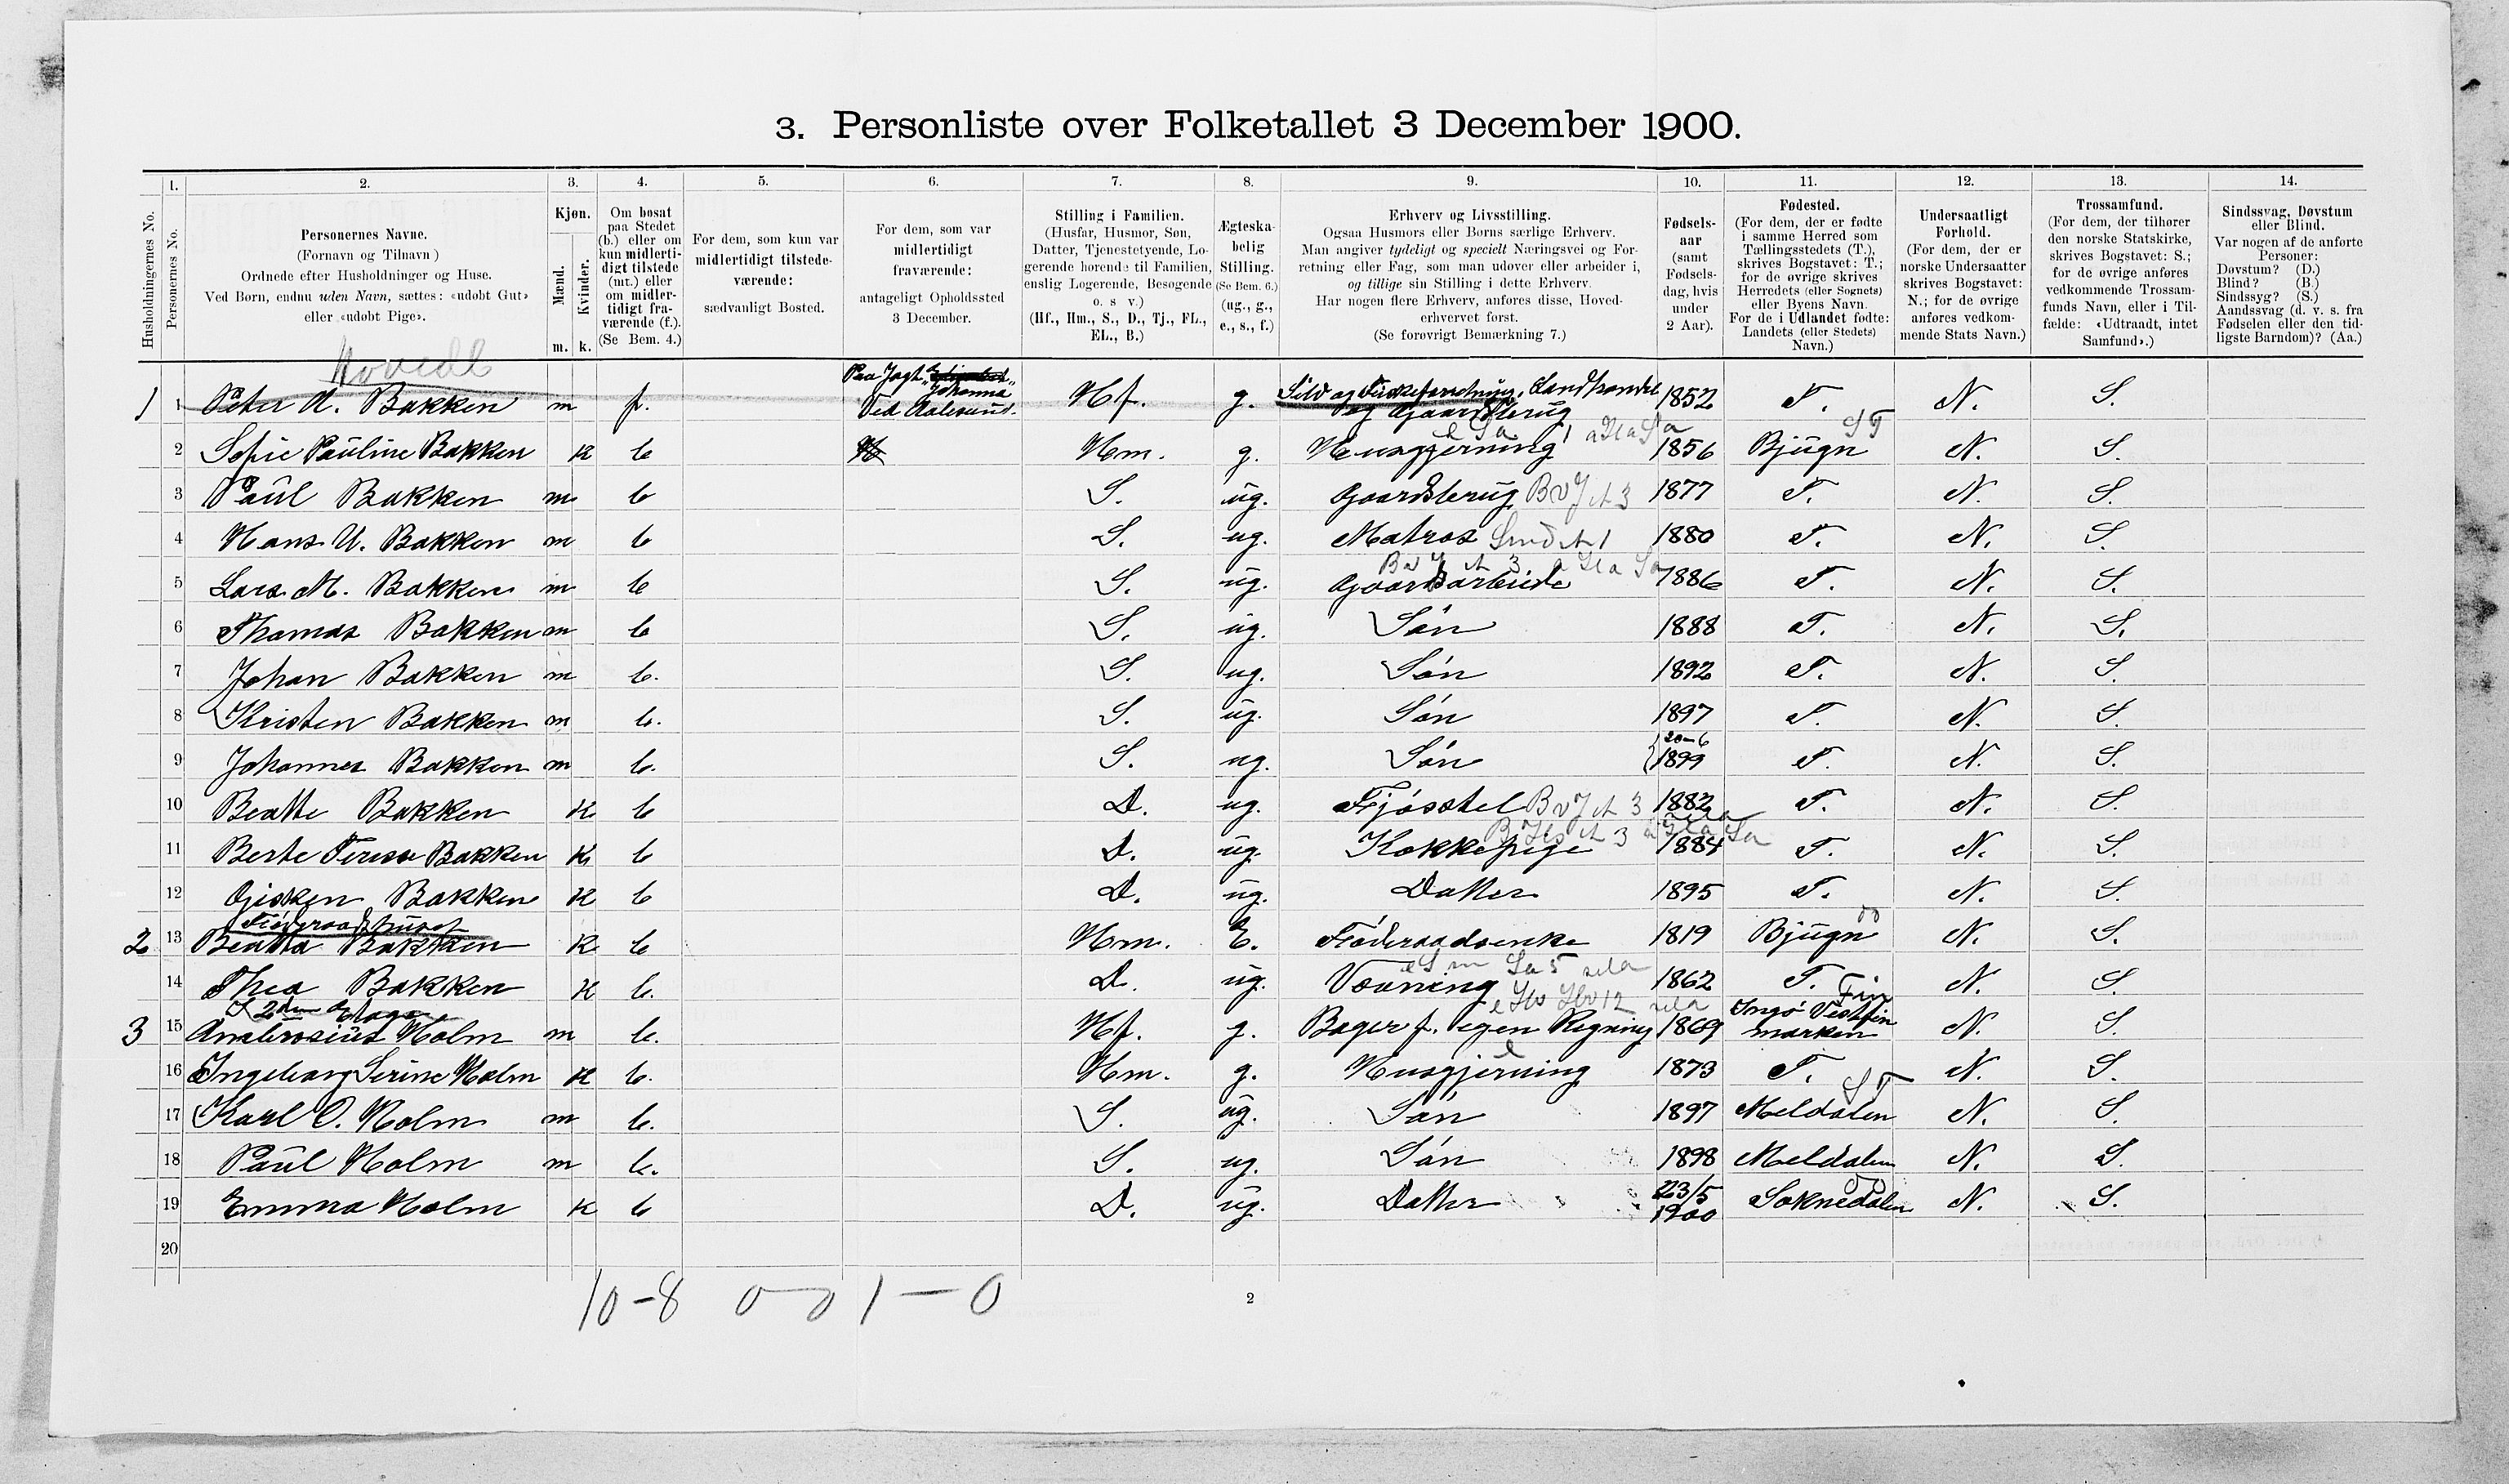 3. Personliste over Folketallet 3 December 1900.
1. 2. 3. 4. 5. 6. 7. 8. 9. 10. 11. 12. 13. 14.
Husholdningernes No.
Personernes No.
Personernes Navne.
(Fornavn og Tilnavn)
Ordnede efter Husholdninger og Huse.
Ved Børn, endnu uden Navn, sættes: «udøbt Gut»
eller «udøbt Pige».
Kjøn.
Mænd.
Kvinder.
m. k.
Om bosat
paa Stedet
(b.) eller om
kun midlerti-
digt tilstede
(mt.) eller
om midler-
tidigt fra-
værende (f.).
(Se Bem. 4.)
For dem, som kun var
midlertidigt tilstede-
værende:
sædvanligt Bosted.
For dem, som var
midlertidigt
fraværende:
antageligt Opholdssted
3 December.
Stilling i Familien.
(Husfar, Husmor, Søn,
Datter, Tjenestetyende, Lo-
gerende hørende til Familien,
enslig Logerende, Besøgende
o. s v.)
(Hf., Hm., S., D., Tj., FL.,
EL., B.)
Ægteska-
belig
Stilling.
(Se Bem. 6.)
(ug., g.,
e., s., f.)
Erhverv og Livsstilling.
Ogsaa Husmors eller Børns særlige Erhverv.
Man angiver tydeligt og specielt Næringsvei og For-
retning eller Fag, som man udøver eller arbeider i,
og tillige sin Stilling i dette Erhverv.
Har nogen flere Erhverv, anføres disse, Hoved-
erhvervet først.
(Se forøvrigt Bemærkning 7.)
Fødsels-
aar
(samt
Fødsels-
dag, hvis
under
2 Aar).
Fødested.
(For dem, der er fødte
i samme Herred som
Tællingsstedets (T.),
skrives Bogstavet: T.;
for de øvrige skrives
Herredets (eller Sognets)
eller Byens Navn.
For de i Udlandet fødte:
Landets (eller Stedets)
Navn.)
Undersaatligt
Forhold.
(For dem, der er
norske Undersaatter
skrives Bogstavet:
N.; for de øvrige
anføres vedkom-
mende Stats Navn.)
Trossamfund.
(For dem, der tilhører
den norske Statskirke,
skrives Bogstavet: S.;
for de øvrige anføres
vedkommende Trossam-
funds Navn, eller i Til-
fælde: «Udtraadt, intet
Samfund».)
Sindssvag, Døvstum
eller Blind.
Var nogen af de anførte
Personer:
Døvstum? (D.)
Blind? (B.)
Sindssyg? (S.)
Aandssvag (d. v. s. fra
Fødselen eller den tid-
ligste Barndom)? (Aa.)
Paa Jagt Johanna
1 1 Peter A. Bakken m f. Ved Aalesund. Hf. g. Sild og Fiskeforretning, Landhandel og Gaardsbrug 1852 T. N. S.
2 Sofie Pauline Bakken k b Hm. g. Husgjerning 1856 Bjugn N. S.
3 Paul Bakken m b S. ug. Gaardsbrug 1877 T. N. S.
4 Hans U. Bakken m b S. ug. Matros 1880 T. N. S.
5 Lars M. Bakken m b S. ug. Gaardsarbeide 1886 T. N. S.
6 Thomas Bakken m b S. ug. Søn 1888 T. N. S.
7 Johan Bakken m b. S. ug. Søn 1892 T. N. S.
8 Kristen Bakken m b. S. ug. Søn 1897 T. N. S.
9 Johannes Bakken m b. S. ug. Søn 20-6 1899 T. N. S.
10 Beatte Bakken k b D. ug. Fjøsstel 1882 T. N. S.
11 Berte Teresa Bakken k b D. ug. Kokkepige 1884 T. N. S.
12 Gisken Bakken k b D. ug. Datter 1895 T. N. S.
Føderaadshuset
2 13 Beatta Bakken k b Hm. E. Føderaadsenke 1819 Bjugn N. S.
14 Thea Bakken k b. D. ug. Vævning 1862 T. N. S.
I 2den Etage
3 15 Ambrosius Holm m b. Hf. g. Bager f. egen Regning 1869 Ingø Vestfinmarken N. S.
16 Ingeborg Serine Holm k b. Hm. g. Husgjerning 1873 T. N. S.
17 Karl O. Holm m b. S. ug. Søn 1897 Meldalen N. S.
18 Paul Holm m b. S. ug. Søn 1898 Meldalen N. S.
19 Emma Holm k b D. ug. Datter 23/5 1900 Soknedalen N. S.
20
10-8 0-0 1-0
2